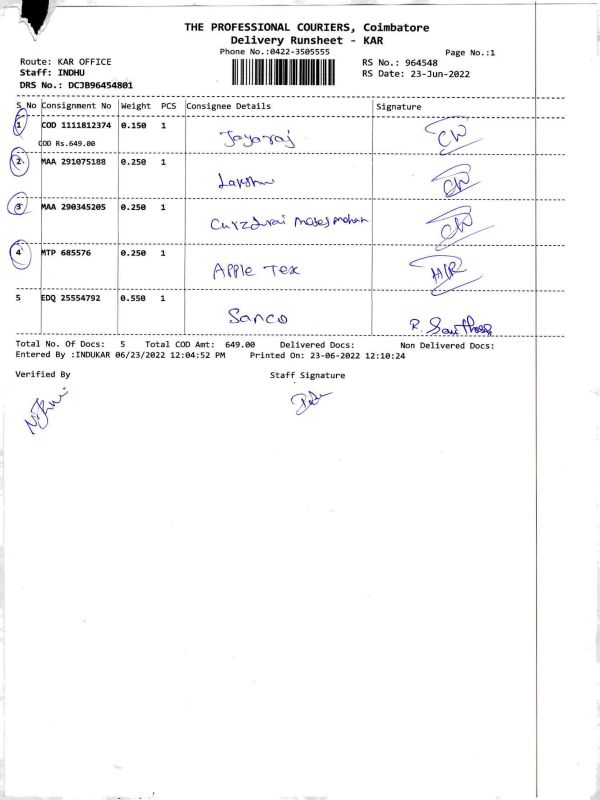 THE PROFESSIONAL COURIERS, Coimbatore
Delivery Runsheet - KAR
Phone No.:0422-3505555
Page No.:1
Route: KAR OFFICE
RS No.: 964548
Staff: INDHU
RS Date: 23-Jun-2022
DRS No.: DCJB96454801
S No Consignment No Weight PCS Consignee Details Signature
1 COD 1111812374 0.150 1 Jayaraj
COD Rs.649.00
2 MAA 291075188 0.250 1 Lakshmi
3 MAA 290345205 0.250 1
4 MTP 685576 0.250 1 Apple Tex
5 EDQ 25554792 0.550 1 Sanco R. Santhosh
Total No. Of Docs: 5 Total COD Amt: 649.00 Delivered Docs: Non Delivered Docs:
Entered By :INDUKAR 06/23/2022 12:04:52 PM Printed On: 23-06-2022 12:10:24
Verified By Staff Signature